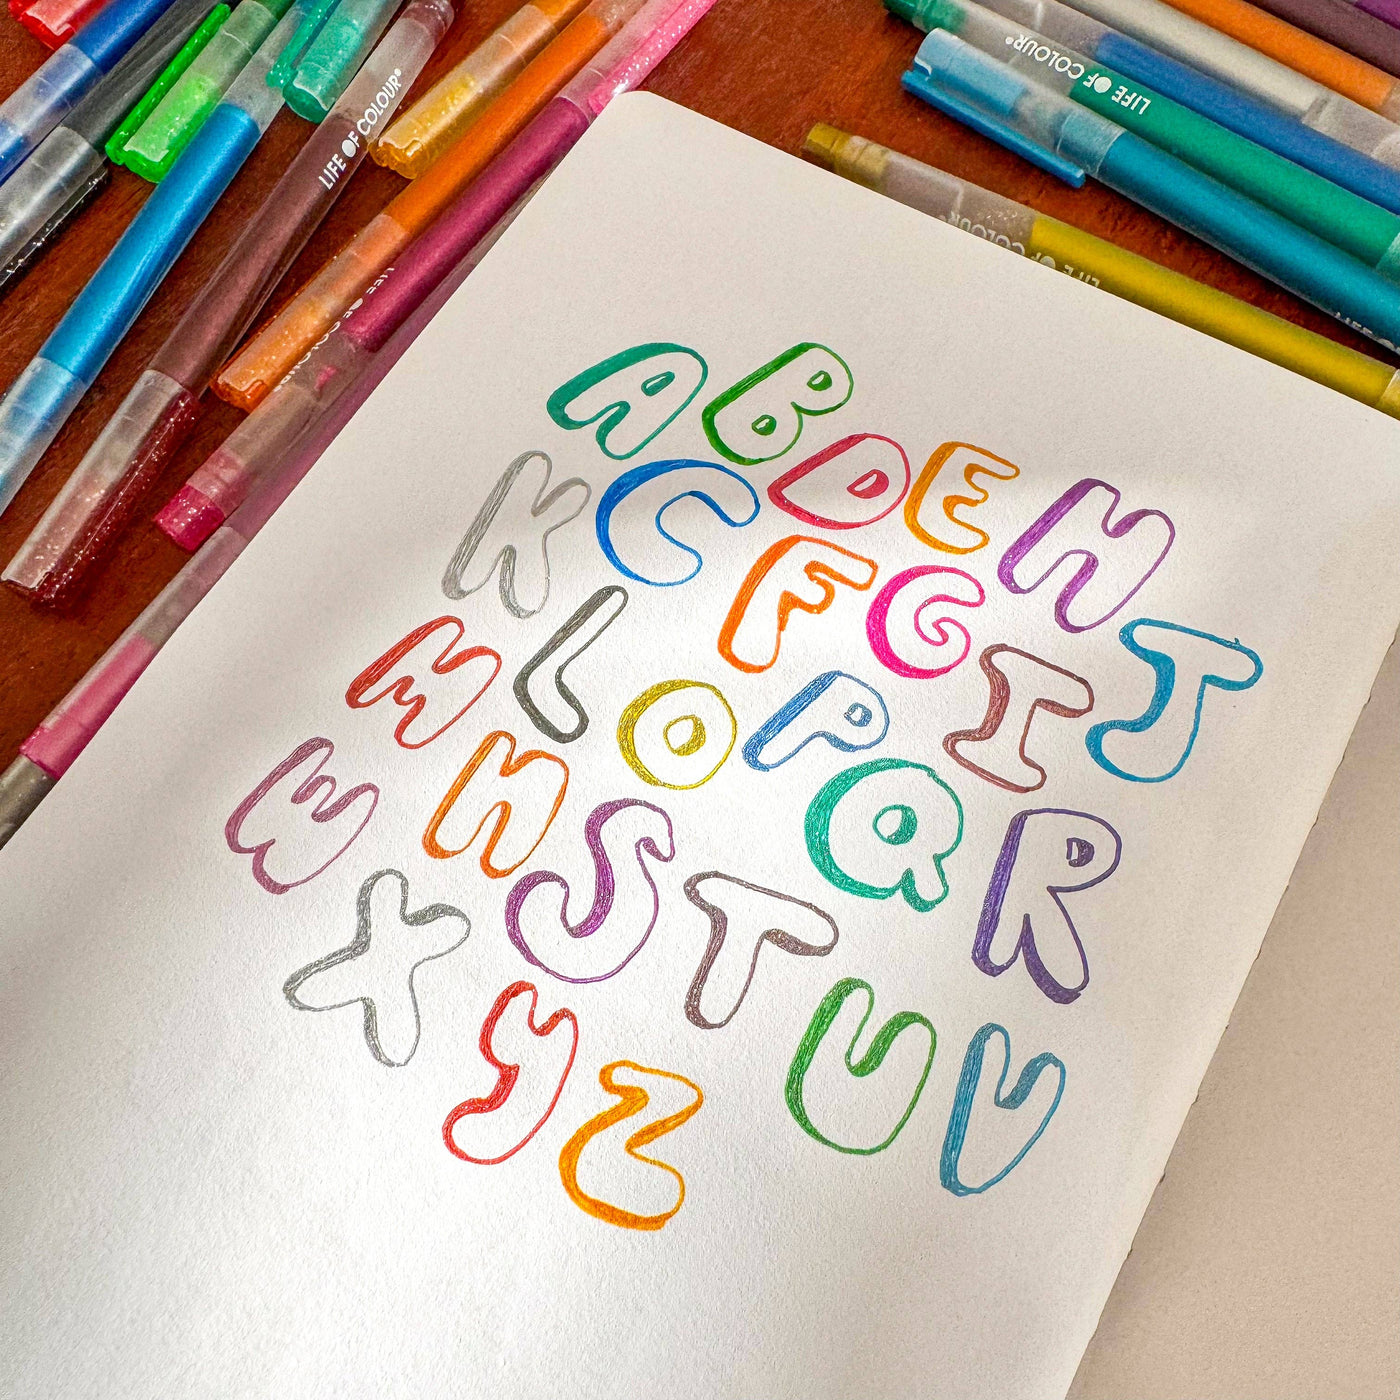 LIFE OF COLOUR
LIFE OF COLOUR
LIFE OF COLOUR
LIFE OF COLOUR
A B C D E F G H I J
K L M N O P Q R
S T U V
W X Y Z